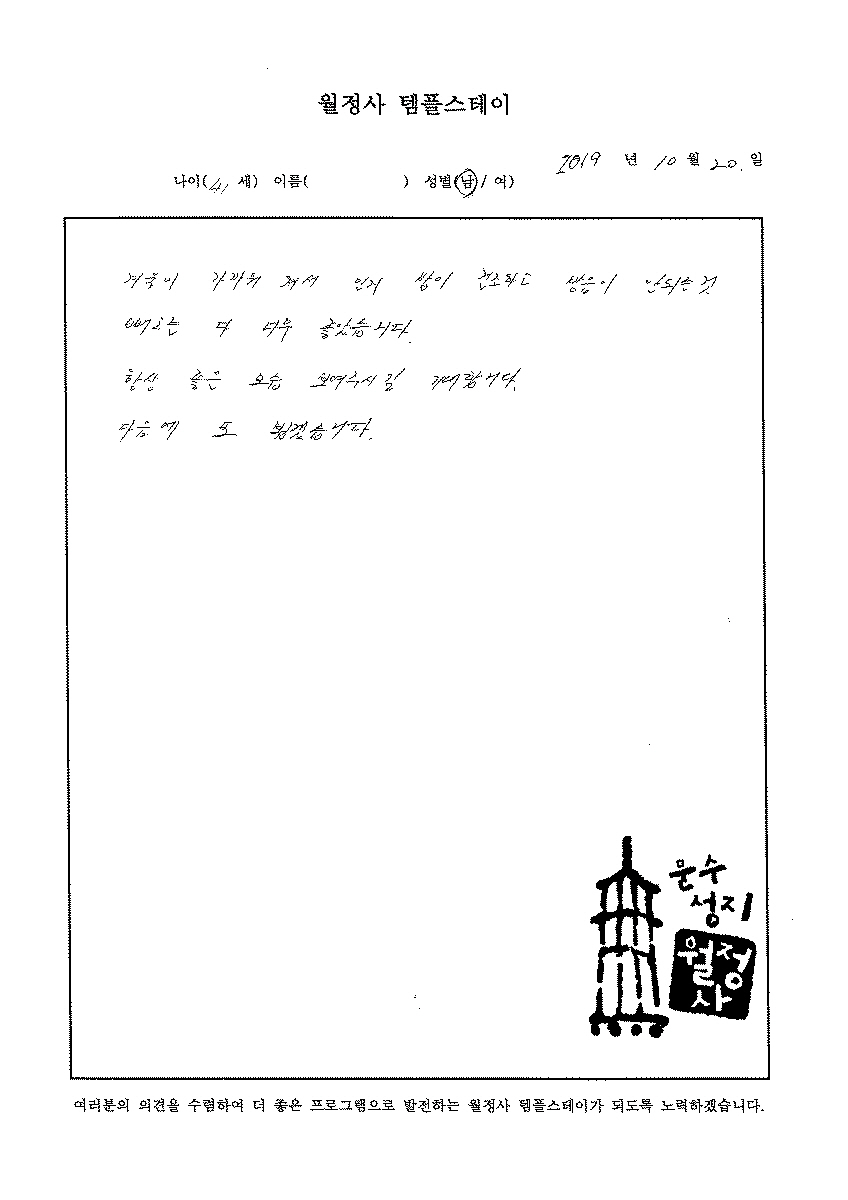 월정사 템플스테이
2019 년 10 월 20. 일
나이(41 세) 이름( ) 성별(남 / 여)
겨울이 가까워 져서 인지 방이 건조하고 방음이 안되는것
빼고는 다 너무 좋았습니다.
항상 좋은 모습 보여주시길 기대합니다.
다음에 도 뵙겠습니다.
문수
성지
월정
사
여러분의 의견을 수렴하여 더 좋은 프로그램으로 발전하는 월정사 템플스테이가 되도록 노력하겠습니다.